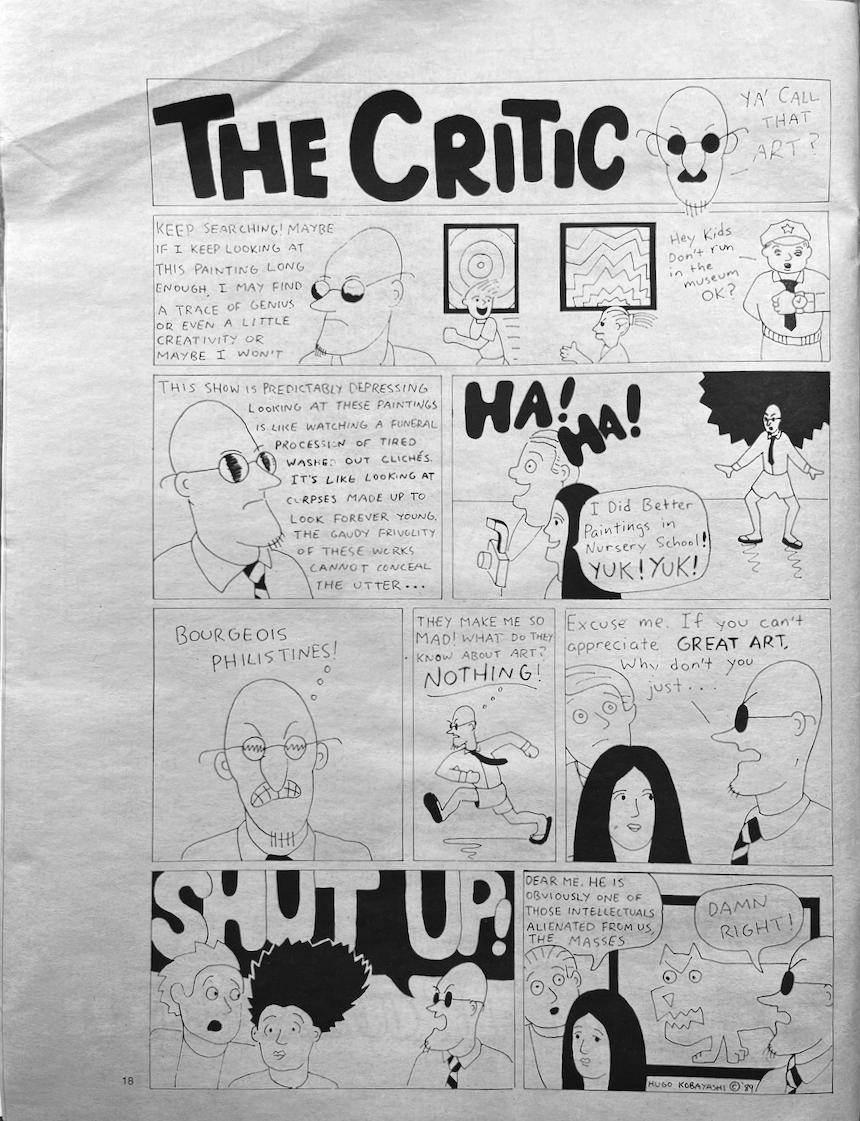 THE CRITIC
YA' CALL
THAT
ART?
KEEP SEARCHING! MAYBE
IF I KEEP LOOKING AT
THIS PAINTING LONG
ENOUGH, I MAY FIND
A TRACE OF GENIUS
OR EVEN A LITTLE
CREATIVITY OR
MAYBE I WON'T
Hey Kids
Don't run
in the
museum
OK?
THIS SHOW IS PREDICTABLY DEPRESSING
LOOKING AT THESE PAINTINGS
IS LIKE WATCHING A FUNERAL
PROCESSION OF TIRED
WASHED OUT CLICHÉS.
IT'S LIKE LOOKING AT
CORPSES MADE UP TO
LOOK FOREVER YOUNG.
THE GAUDY FRIVOLITY
OF THESE WORKS
CANNOT CONCEAL
THE UTTER...
HA!
HA!
I Did Better
Paintings in
Nursery School!
YUK! YUK!
BOURGEOIS
PHILISTINES!
THEY MAKE ME SO
MAD! WHAT DO THEY
KNOW ABOUT ART?
NOTHING!
Excuse me. If you can't
appreciate GREAT ART,
Why don't you
just...
SHUT UP!
DEAR ME. HE IS
OBVIOUSLY ONE OF
THOSE INTELLECTUALS
ALIENATED FROM US,
THE MASSES
DAMN
RIGHT!
HUGO KOBAYASHI © '89
18